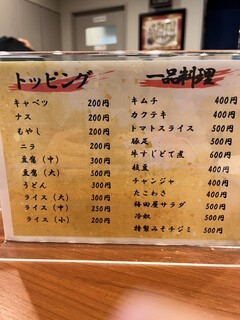 トッピング
キャベツ 200円
ナス 200円
もやし 200円
ニラ 200円
豆腐（中） 300円
豆腐（大） 500円
うどん 300円
ライス（大） 300円
ライス（中） 250円
ライス（小） 200円
一品料理
キムチ 400円
カクテキ 400円
トマトスライス 500円
豚足 500円
牛すじどて煮 600円
枝豆 400円
チャンジャ 400円
たこわさ 400円
梅田屋サラダ 500円
冷奴 500円
特製みそチヂミ 500円